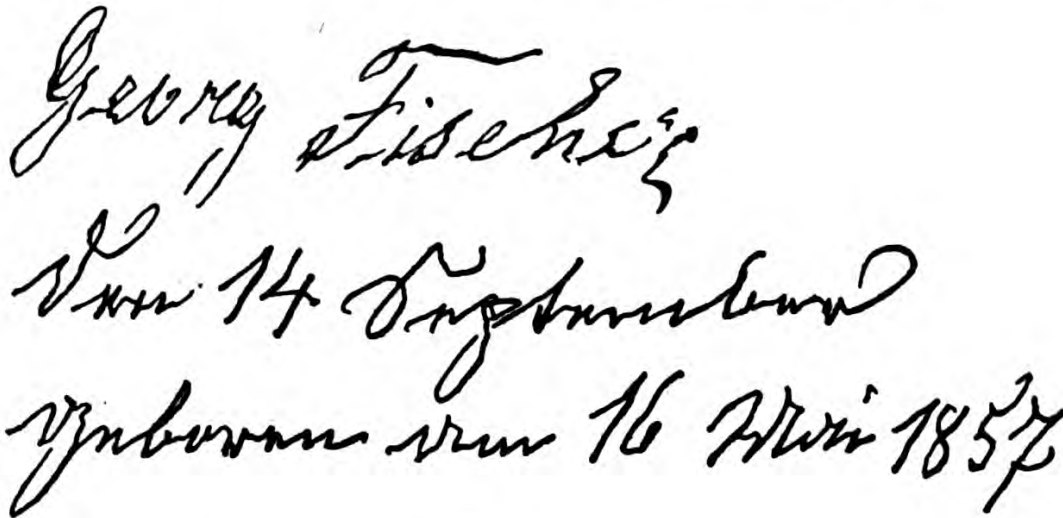 Georg Fischer
Den 14 September
Geboren am 16 Mai 1857